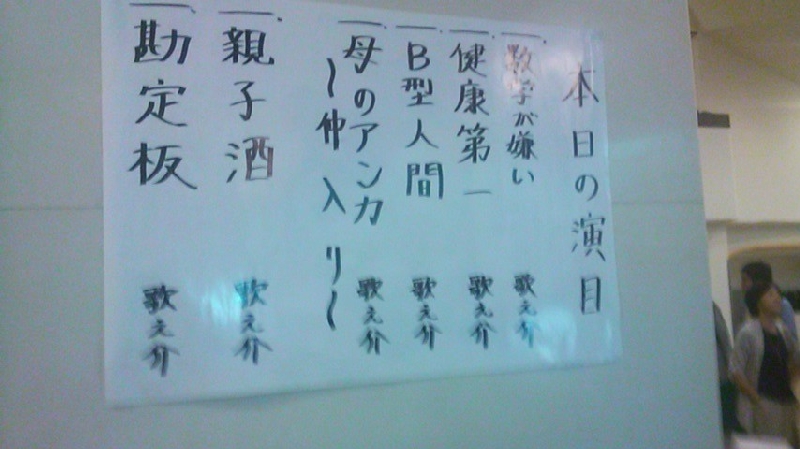 本日の演目
一、数学が嫌い 歌之介
一、健康第一 歌之介
一、B型人間 歌之介
一、母のアンカ 歌之介
〜仲入り〜
一、親子酒 歌之介
一、勘定板 歌之介